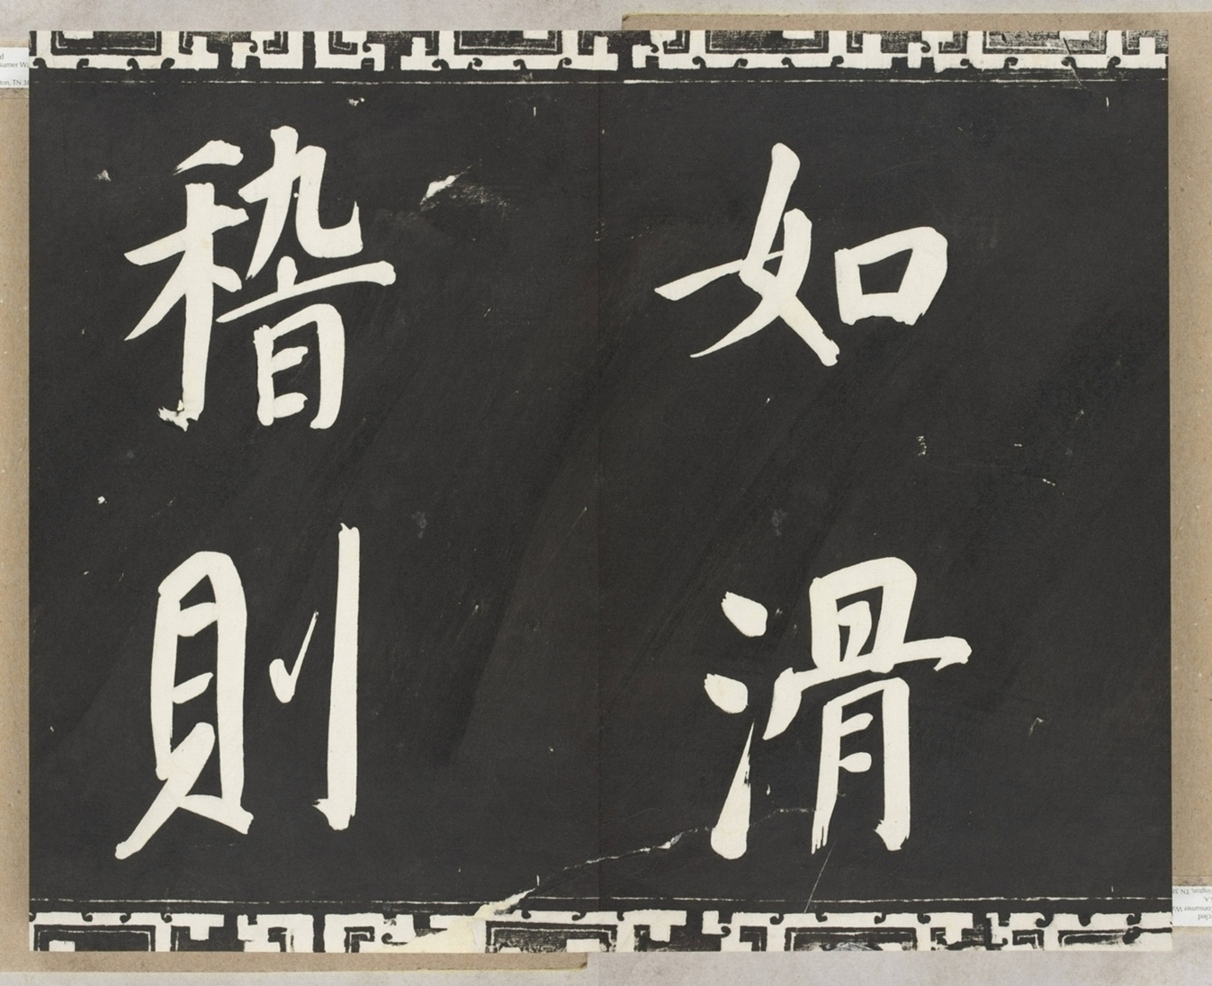 如滑
稽則